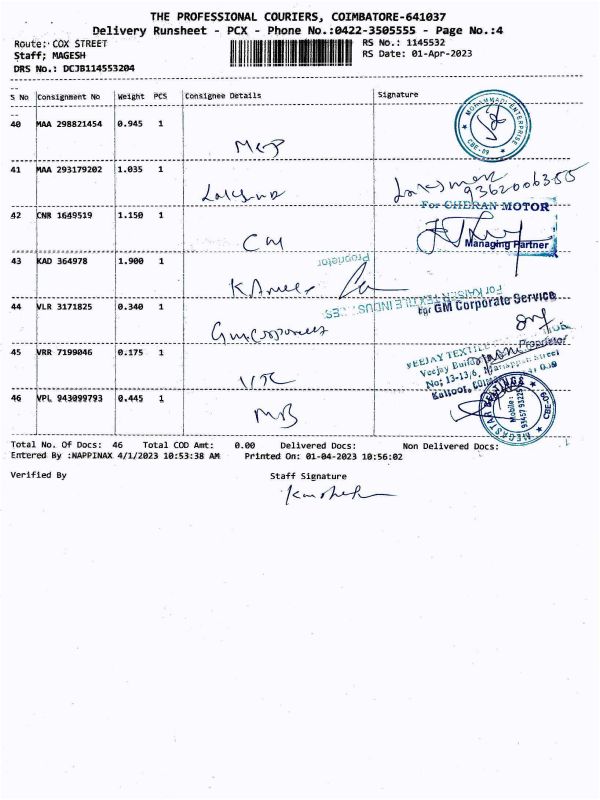 THE PROFESSIONAL COURIERS, COIMBATORE-641037
Delivery Runsheet - PCX - Phone No.:0422-3505555 - Page No.:4
Route: COX STREET RS No.: 1145532
Staff; MAGESH RS Date: 01-Apr-2023
DRS No.: DCJB114553204
S No Consignment No Weight PCS Consignee Details Signature
40 MAA 298821454 0.945 1
MOHAMMADI ENTERPRISE
CBE-09
41 MAA 293179202 1.035 1
Laksmon
9362006355
For CHERAN MOTOR
42 CNR 1649519 1.150 1
CM
Managing Partner
43 KAD 364978 1.900 1
Proprietor
For KAISER TEXTILE INDUSTRIES
44 VLR 3171825 0.340 1
For GM Corporate Service
GM Corporates
Proprietor
45 VRR 7199046 0.175 1
VTC
VEEJAY TEXTILE
Veejay Building
No; 13-13/6,
Street
Kattoor,
46 VPL 943099793 0.445 1
MB
MEGASTAR BEARINGS
Mobile:
CBE-09
Total No. Of Docs: 46 Total COD Amt: 0.00 Delivered Docs: Non Delivered Docs:
Entered By :NAPPINAX 4/1/2023 10:53:38 AM Printed On: 01-04-2023 10:56:02
Verified By Staff Signature